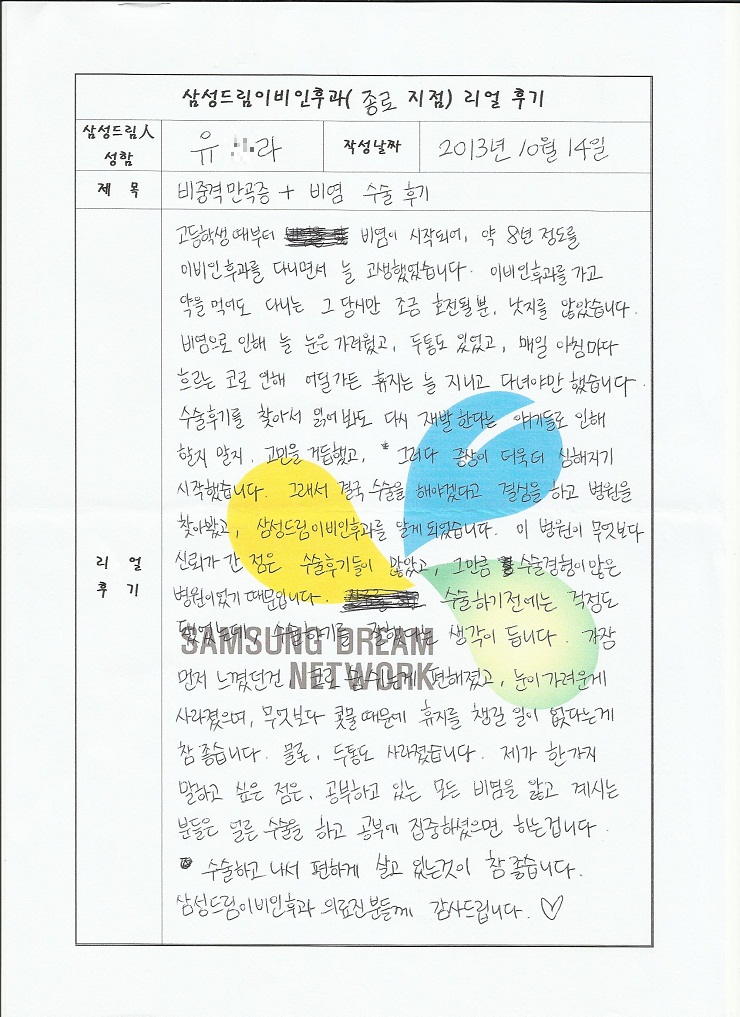 삼성드림이비인후과( 종로 지점) 리얼 후기
삼성드림人 성함
유 라
작성날짜
2013년 10월 14일
제 목
비중격만곡증 + 비염 수술 후기
리 얼 후 기
고등학생때부터 비염이 시작되어, 약 8년 정도를
이비인후과를 다니면서 늘 고생했었습니다. 이비인후과를 가고
약을 먹어도 다니는 그 당시만 조금 호전될 뿐, 낫지를 않았습니다.
비염으로 인해 늘 눈은 가려웠고, 두통도 있었고, 매일 아침마다
흐르는 코로 인해 어딜가든 휴지는 늘 지니고 다녀야만 했습니다.
수술후기를 찾아서 읽어봐도 다시 재발한다는 얘기들로 인해
할지 말지, 고민을 거듭했고, 그러다 증상이 더욱더 심해지기
시작했습니다. 그래서 결국 수술을 해야겠다고 결심을 하고 병원을
찾아봤고, 삼성드림이비인후과를 알게 되었습니다. 이 병원이 무엇보다
신뢰가 간 점은 수술후기들이 많았고, 그만큼 수술경험이 많은
병원이었기 때문입니다. 수술하기전에는 걱정도
됐었는데, 수술하기를 잘했다는 생각이 듭니다. 가장
SAMSUNG DREAM
NETWORK
먼저 느꼈던건, 코로 숨쉬는게 편해졌고, 눈이 가려운게
사라졌으며, 무엇보다 콧물때문에 휴지를 챙길 일이 없다는게
참 좋습니다. 물론, 두통도 사라졌습니다. 제가 한가지
말하고 싶은 점은, 공부하고 있는 모든 비염을 앓고 계시는
분들은 얼른 수술을 하고 공부에 집중하셨으면 하는겁니다.
수술하고 나서 편하게 살고 있는것이 참 좋습니다.
삼성드림이비인후과 의료진분들께 감사드립니다. ♡